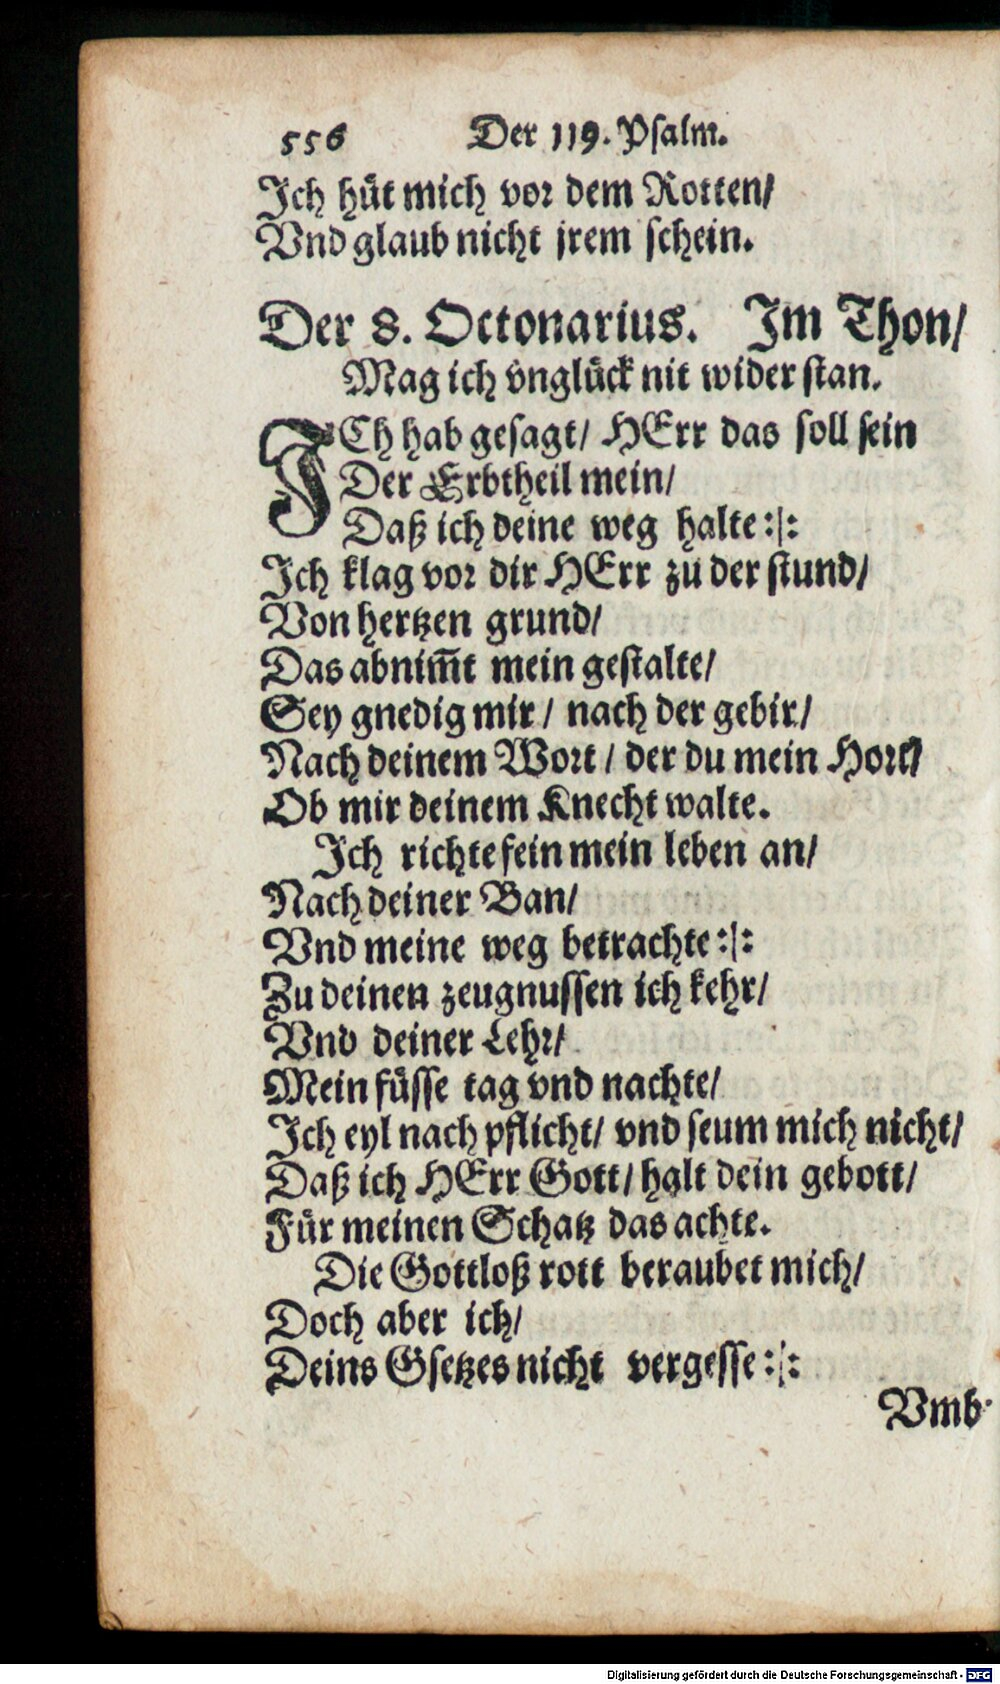 556 Der 119. Psalm.
Ich hüt mich vor dem Rotten/
Vnd glaub nicht jrem schein.
Der 8. Octonarius. Im Thon/
Mag ich vnglück nit wider stan.
ICh hab gesagt/ HErr das soll sein
Der Erbtheil mein/
Daß ich deine weg halte:|:
Ich klag vor dir HErr zu der stund/
Von hertzen grund/
Das abnim̅t mein gestalte/
Sey gnedig mir/ nach der gebir/
Nach deinem Wort/ der du mein Hort/
Ob mir deinem Knecht walte.
Ich richte fein mein leben an/
Nach deiner Ban/
Vnd meine weg betrachte:|:
Zu deinen zeugnussen ich kehr/
Vnd deiner Lehr/
Mein füsse tag vnd nachte/
Ich eyl nach pflicht/ vnd seum mich nicht/
Daß ich HErr Gott/ halt dein gebott/
Für meinen Schatz das achte.
Die Gottloß rott beraubet mich/
Doch aber ich/
Deins Gsetzes nicht vergesse:|:
Vmb
Digitalisierung gefördert durch die Deutsche Forschungsgemeinschaft - DFG